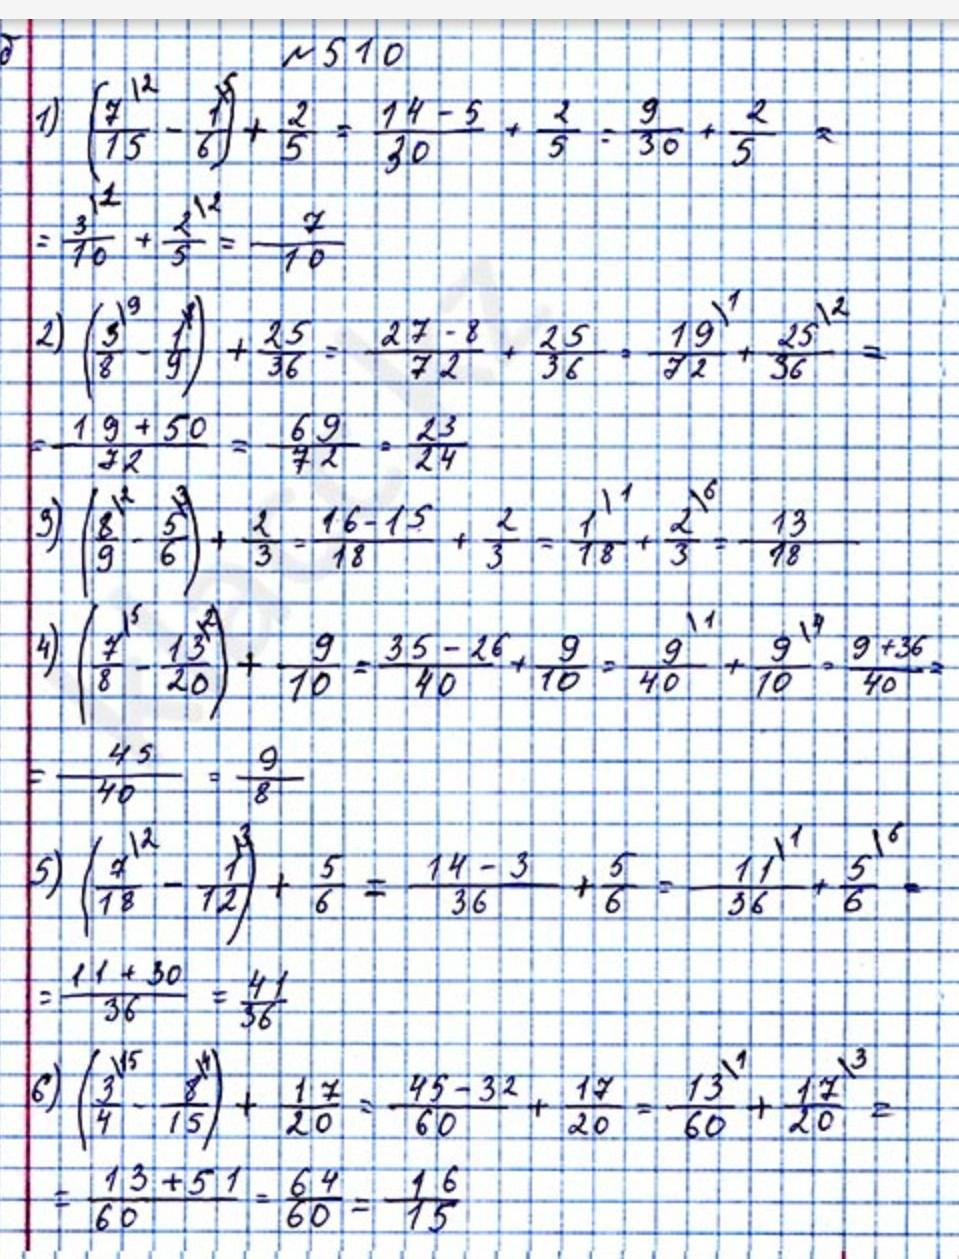 №510
1) (7/15\2 - 1/6\5) + 2/5 = (14-5)/30 + 2/5 = 9/30 + 2/5 =
= 3/10\1 + 2/5\2 = 7/10
2) (3/8\9 - 1/9\8) + 25/36 = (27-8)/72 + 25/36 = 19/72\1 + 25/36\2 =
= (19+50)/72 = 69/72 = 23/24
3) (8/9\2 - 5/6\3) + 2/3 = (16-15)/18 + 2/3 = 1/18\1 + 2/3\6 = 13/18
4) (7/8\5 - 13/20\2) + 9/10 = (35-26)/40 + 9/10 = 9/40\1 + 9/10\4 = (9+36)/40 =
= 45/40 = 9/8
5) (7/18\2 - 1/12\3) + 5/6 = (14-3)/36 + 5/6 = 11/36\1 + 5/6\6 =
= (11+30)/36 = 41/36
6) (3/4\15 - 8/15\4) + 17/20 = (45-32)/60 + 17/20 = 13/60\1 + 17/20\3 =
= (13+51)/60 = 64/60 = 16/15